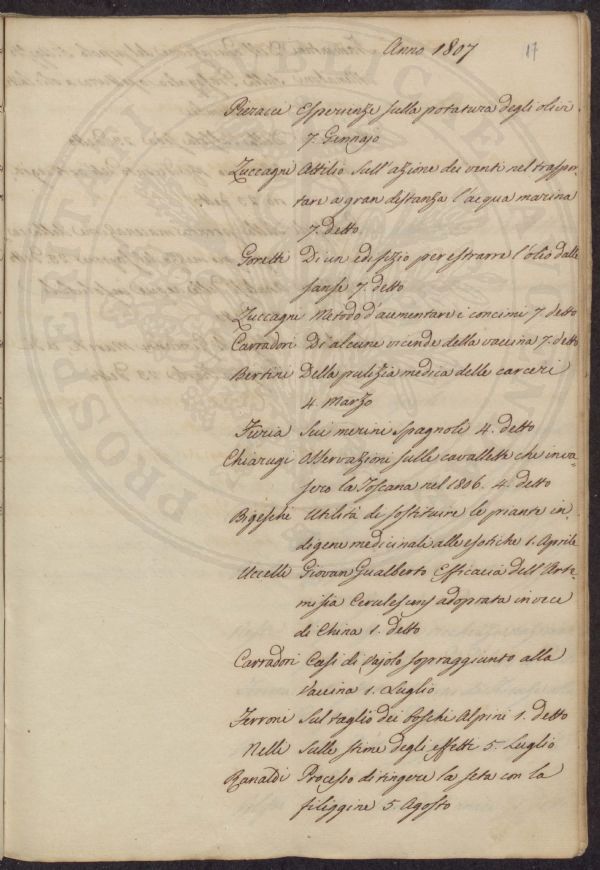 Anno 1807
17
Pieracci Esperienze sulla potatura degli olivi.
7. Gennajo
Zuccagni Attilio Sull'azione dei venti nel traspor-
tare a gran distanza l'acqua marina
7. detto
Goretti Di un edifizio per estrarre l'olio dalle
sanse 7. detto
Zuccagni Metodo d'aumentare i concimi 7 detto
Carradori Di alcune vicende della vaccina 7. detto
Bertini Della pulizia medica delle carceri
4. Marzo
Furia Sui merini spagnoli 4. detto
Chiarugi Osservazioni sulle cavallette che inva-
sero la Toscana nel 1806. 4. detto
Bigeschi Utilità di sostituire le piante in-
digene medicinali alle esotiche 1. Aprile
Uccelli Giovan Gualberto Efficacia dell'Arte-
misia Cerulescens adoprata invece
di China 1. detto
Carradori Casi di Vajolo sopraggiunto alla
Vaccina 1. Luglio
Ferroni Sul taglio dei boschi Alpini 1. detto
Nelli Sulle stime degli effetti 5. Luglio
Ranaldi Processo di tingere la seta con la
filiggine 5. Agosto
PROSPERITATI PUBLICAE